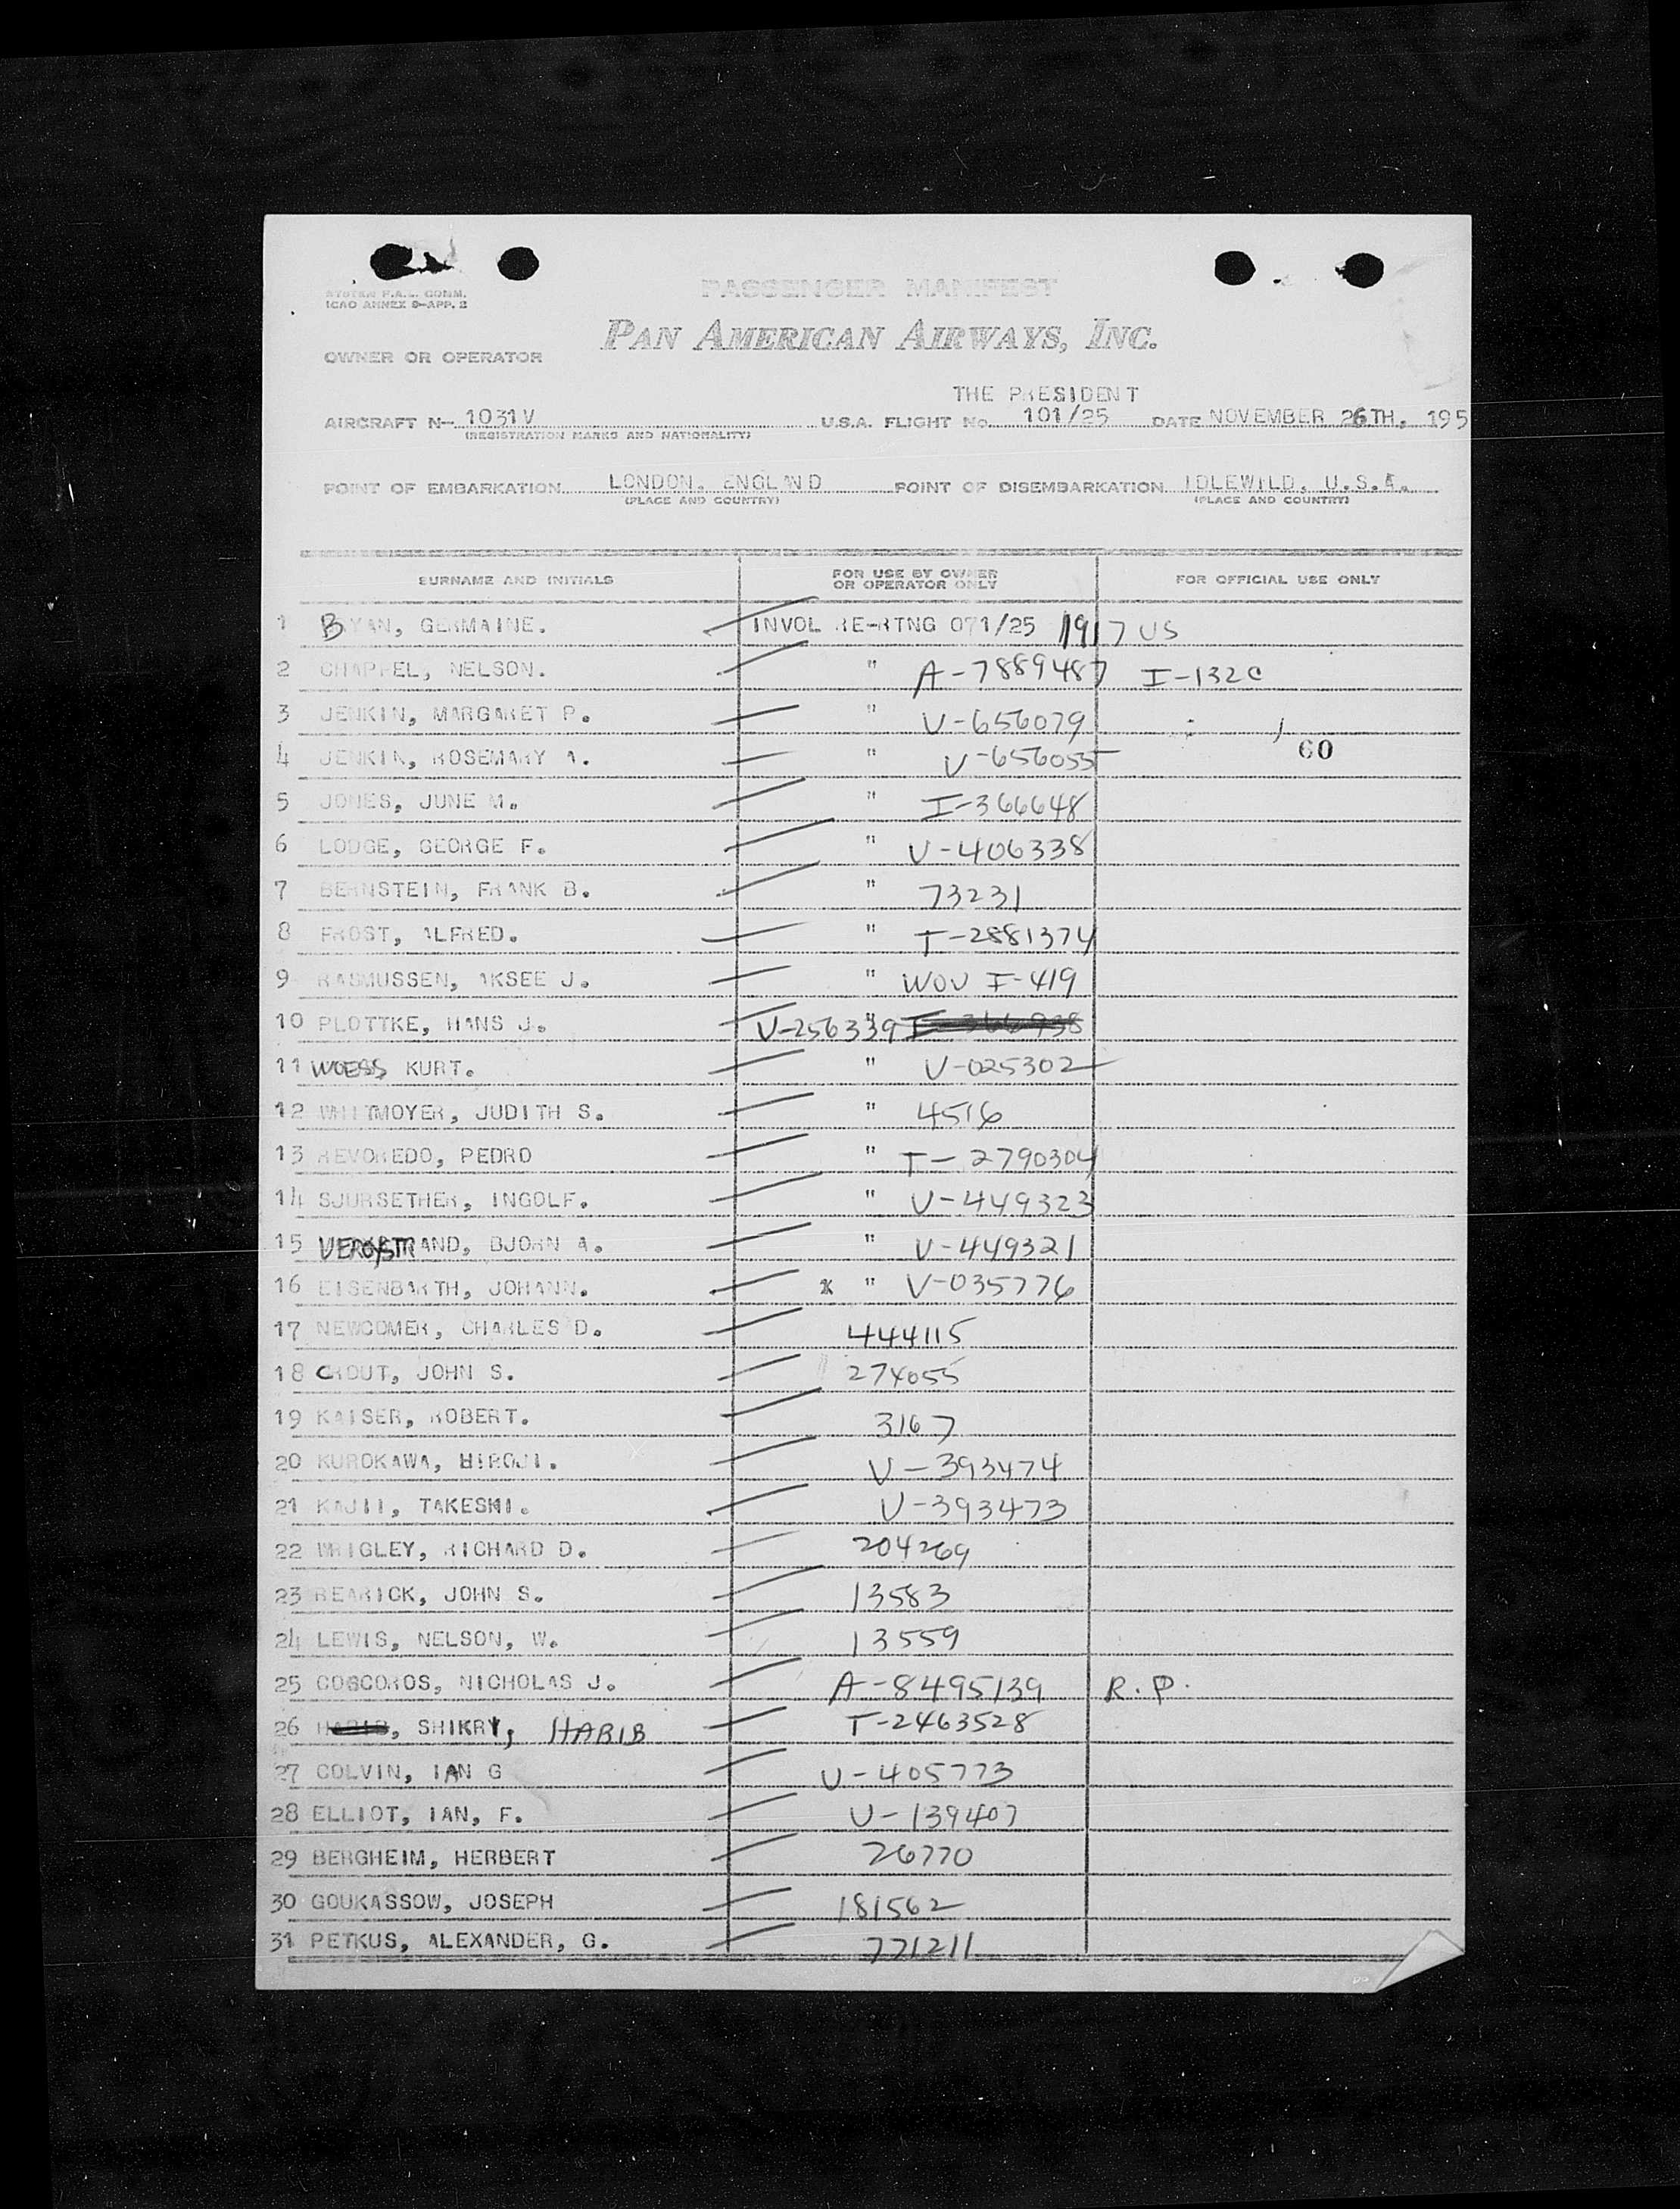 SYSTEM F.A.L. COMM.
ICAO ANNEX 9-APP. 2
PASSENGER MANIFEST
PAN AMERICAN AIRWAYS, INC.
OWNER OR OPERATOR
THE PRESIDENT
AIRCRAFT N- 1031V U.S.A. FLIGHT No. 101/25 DATE NOVEMBER 26TH, 195
(REGISTRATION MARKS AND NATIONALITY)
POINT OF EMBARKATION LONDON, ENGLAND POINT OF DISEMBARKATION IDLEWILD, U.S.A.
(PLACE AND COUNTRY) (PLACE AND COUNTRY)
SURNAME AND INITIALS FOR USE BY OWNER OR OPERATOR ONLY FOR OFFICIAL USE ONLY
1 BRYAN, GERMAINE. INVOL RE-RTNG 071/25 1917 US
2 CHAPPEL, NELSON. " A-7889487 I-132C
3 JENKIN, MARGARET P. " V-656079
4 JENKIN, ROSEMARY A. " V-656055 60
5 JONES, JUNE M. " I-366648
6 LODGE, GEORGE F. " V-406338
7 BERNSTEIN, FRANK B. " 73231
8 FROST, ALFRED. " T-2881374
9 RASMUSSEN, AKSEE J. " WOV I-419
10 PLOTTKE, HANS J. V-256339 " I-366938
11 WOESS KURT. " V-025302
12 WHITMOYER, JUDITH S. " 4516
13 REVOREDO, PEDRO " T-2790304
14 SJURSETHER, INGOLF. " V-449323
15 BJORN A. " V-449321
16 EISENBARTH, JOHANN. " V-035776
17 NEWCOMER, CHARLES D. 444115
18 CROUT, JOHN S. 274055
19 KAISER, ROBERT. 3167
20 KUROKAWA, HIROJI. V-393474
21 KAJII, TAKESHI. V-393473
22 WRIGLEY, RICHARD D. 204269
23 REARICK, JOHN S. 13583
24 LEWIS, NELSON, W. 13559
25 COSCOROS, NICHOLAS J. A-8495139 R.P.
26 HABIB, SHIKRY, HABIB T-2463528
27 COLVIN, IAN G V-405773
28 ELLIOT, IAN, F. V-139407
29 BERGHEIM, HERBERT 26770
30 GOUKASSOW, JOSEPH 181562
31 PETKUS, ALEXANDER, G. 771211